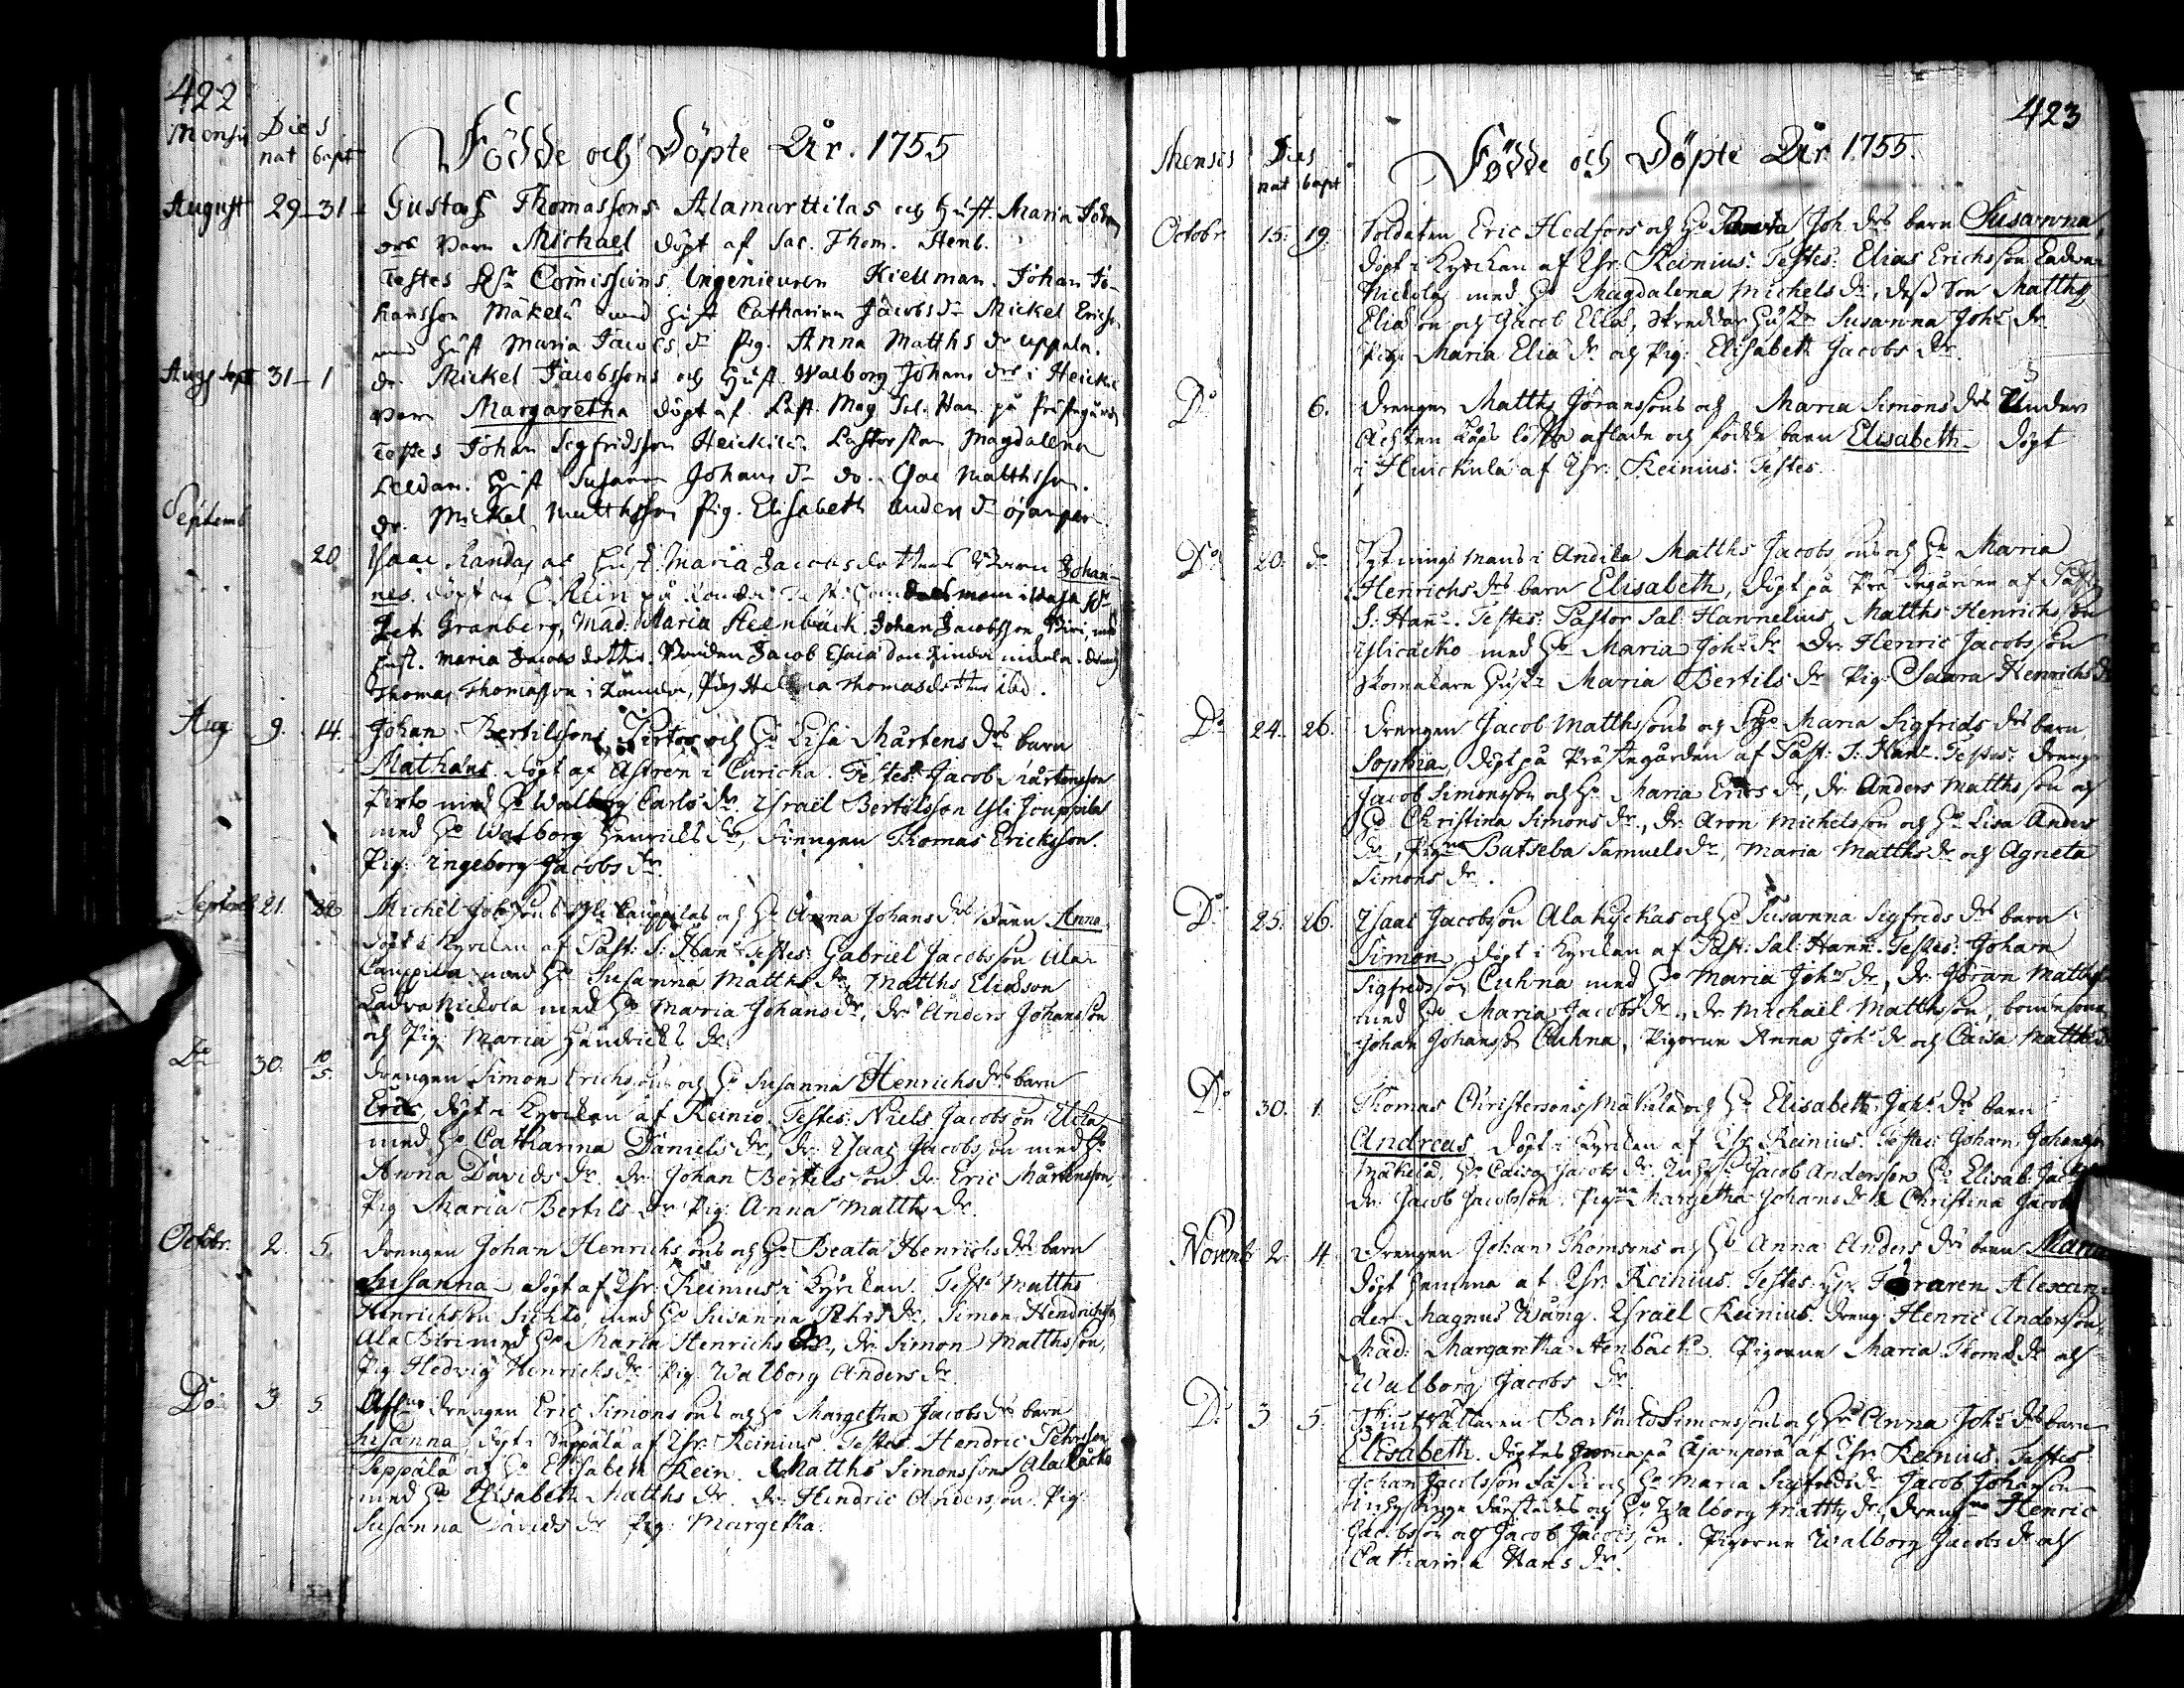 422
Mensis Dies
nat bapt
Födde och Döpte Åhr. 1755
August 29-31- Gustaf Thomassons Alamarttilas och Hust. Maria Johan
drs barn Michael döpt af Sac. Thom. Stenb.
Testes Commissions Ingenieuren Kiellman. Johan Jo-
hansson Mäkelä med Hust Catharina Jacobs dr Mickel Erichss.
med Hust Maria Jacobs dr Pig. Anna Matths dr uppala.
Aug Sept 31-1 dr. Mickel Jacobssons och Hust. Walborg Johans drs i Heickilä
barn Margaretha döpt af Past. Mag Sal. Han. på Prästgården
Testes Johan Segfridsson Heickilä. Pastorskan Magdalena
Hust Susanna Johans dr do. Matthsson.
dr. Mickel Matthsson Pig. Elisabeth Anders dr
Septemb
20 Isaac Hust. Maria Jacobsdotters Barn Johan-
nes. döpt af C. Rein på
Pet. Granberg, Mad. Maria Steenbäck. Johan Jacobsson med
Hust. Maria Jacobs dotter. Jacob
Thomas Thomasson i Pig Helena Thomasdotter ibid.
Aug 9. 14. Johan Bertilssons Pirtos och Ho Lisa Mårtens drs barn
Mathaus. döpt af Aströn i Curicka. Testes: Jacob Mårtensson
Pirto med Ho Walborg Carls dr. Israël Bertilsson Yli Jouppila
med Ho Walborg Henrichs dr, Drengen Thomas Ericksson.
Pig: Ingeborg Jacobs dr.
Septemb 21. 22 Michel Johssons Yli Cauppilas och Ho Anna Johans drs Barn Anna,
döpt i Kyrckan af Past: S: Han: Testes: Gabriel Jacobsson Ala
Cauppila med Ho Susanna Matths dr, Matths Eliasson
Ladva Nickola med Ho Maria Johansdr, dr Anders Johansson
och Pig: Maria Handrichs dr.
Do 30. 10/5. drengen Simon Erichssons och Ho Susanna Henrichs drs barn
Eric, döpt i Kyrckan af Reinio. Testes: Niels Jacobsson
med Ho Catharina Daniels dr, Dr: Isaac Jacobsson med Ho
Anna Davids dr. dr: Johan Bertilsson. dr: Eric Mårtensson,
Pig Maria Bertils dr Pig: Anna Matth dr.
Octobr. 2. 5. drengen Johan Henrichssons och Ho Beata Henrichs drs barn
Susanna döpt af Hr: Reinius i Kyrckan. Test: Matths
Henrichsson med Ho Susanna Pehrs dr, Simon Hendrichsson
Ala med Ho Maria Henrichs dr, dr. Simon Matthsson,
Pig Hedvig Henrichs dr Pig: Walborg Anders dr.
Do 3 5. drengen Eric Simonssons och Ho Margetha Jacobs drs barn
Susanna döpt i Seppälä af Hr: Reinius. Testes: Hendric Pehrsson
Seppälä och Ho Elisabeth Rein. Matths Simonssons
med Ho Elisabeth Matths dr. dr: Hendric Andersson. Pig:
Susanna Davids dr Pig: Margetha.
423
Mensis Dies
nat bapt
Födde och Döpte Åhr 1755.
Octobr. 15. 19. Soldaten Eric Hedfors och Ho Joh. drs barn Susanna,
döpt i Kyrckan af Hr: Reinius: Testes: Elias Erichsson Ladva
Nickola med Ho Magdalena Michels dr, dess Son Matths
Eliasson och Jacob Elias, Skreddar Hust: Susanna Joh: dr
Pig: Maria Elia dr och Pig: Elisabeth Jacobs dr.
Do 6. Drengen Matths Joranssons och Maria Simons drs Under
Achtenskaps löfte aflade och födde barn Elisabeth döpt
i Hvickula af Hr: Reinius: Testes.
Do 20. do i Andila Matths Jacobssons och Ho Maria
Henrichs drs barn Elisabeth, döpt på Prästegården af Past:
S: Han: Testes: Pastor Sal: Hannelius, Matths Henrichsson
med Ho Maria Joh: dr dr: Henric Jacobsson
Skomakare Hust: Maria Bertils dr Pig: Saara Henrichs dr
Do 24. 26. Drengen Jacob Matthssons och Ho Maria Sigfrids drs barn
Sophia, döpt på Prästegården af Past: S: Han: Testes: dreng:
Jacob Simonsson och Ho Maria Erics dr, dr Anders Matthsson och
Ho Christina Simons dr, dr: Aron Michelsson och Ho Lisa Anders
dr, Pigna Batseba Samuels dr, Maria Matths dr och Agneta
Simons dr.
Do 25. 26. Isaac Jacobsson Ala och Ho Susanna Sigfreds drs barn
Simon, döpt i Kyrckan af Past: Sal: Hann: Testes: Johan
Sigfredsson Cuhna med Ho Maria Joh: dr, dr: Joran Mattss
med Ho Maria Jacobs dr, dr Michaël Matthsson, bondesonen
Johan Johansson Cuhna, Pigorne Anna Joh: dr och Caisa Matths dr
Do 30. 1. Thomas Christersons Mäkelä och Ho Elisabeth Joh: drs barn
Andreas döpt i Kyrckan af Hr Reinius. Testes: Johan Johansson
Mäkelä, Ho Caisa Jacobs dr. Jacob Andersson Ho Elisab: Jac
dr: Jacob Jacobsson. Pigna Margetha Johans dr & Christina Jacobs
Novemb 2. 4. Drengen Johan Thomsons och Ho Anna Anders drs barn Maria
döpt hemma af Hr: Reinius. Testes: Hr: Alexan-
der Magnus Wäng. Israel Reinius. dreng Henric Andersson,
Mad: Margaretha Stenbäck. Pigorne Maria Thoms dr och
Walborg Jacobs dr.
Do 3. 5. Simonssons och Ho Anna Joh: drs barn
Elisabeth. döptes hema på Äjanperä af Hr: Reinius. Testes:
Johan Jacobsson Sassi och Ho Maria Sigfreds dr Jacob Johansson
och Ho Walborg Matths dr, drengne Henric
Jacobsson och Jacob Jacobsson. Pigorne Walborg Jacobs dr och
Catharina Hans dr.